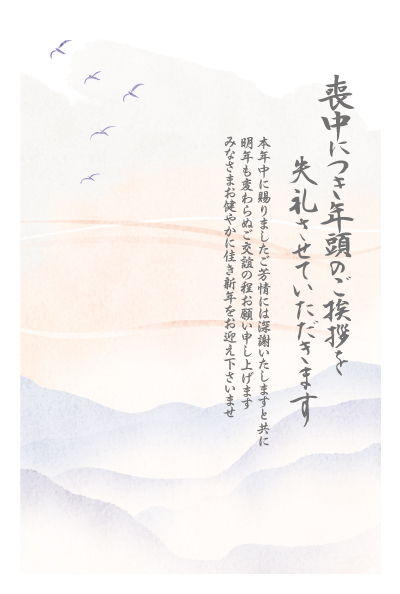 喪中につき年頭のご挨拶を
失礼させていただきます
本年中に賜りましたご芳情には深謝いたしますと共に
明年も変わらぬご交誼の程お願い申し上げます
みなさまお健やかに佳き新年をお迎え下さいませ